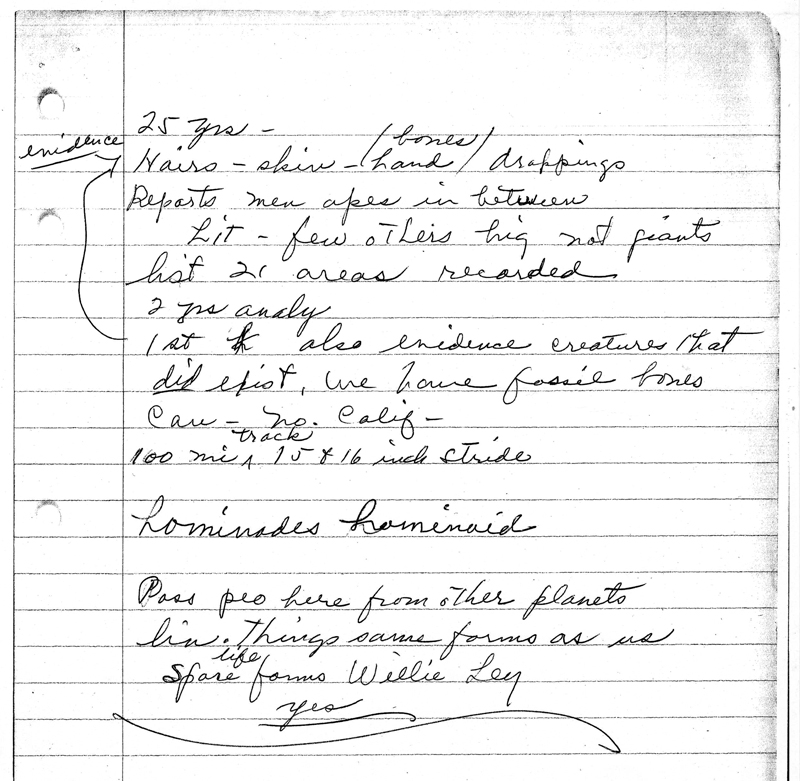 25 yrs -
evidence
(bones)
Hairs - skin - hand / droppings
Reports men apes in between
Lit - few others big not giants
list 21 areas recorded
2 yrs analy
1st also evidence creatures that
did exist, we have fossil bones
Can - no. Calif -
track
100 mi ^ 15 & 16 inch stride
hominades hominoid
Poss peo here from other planets
liv. things same forms as us
life
Spore forms Willie Ley
yes